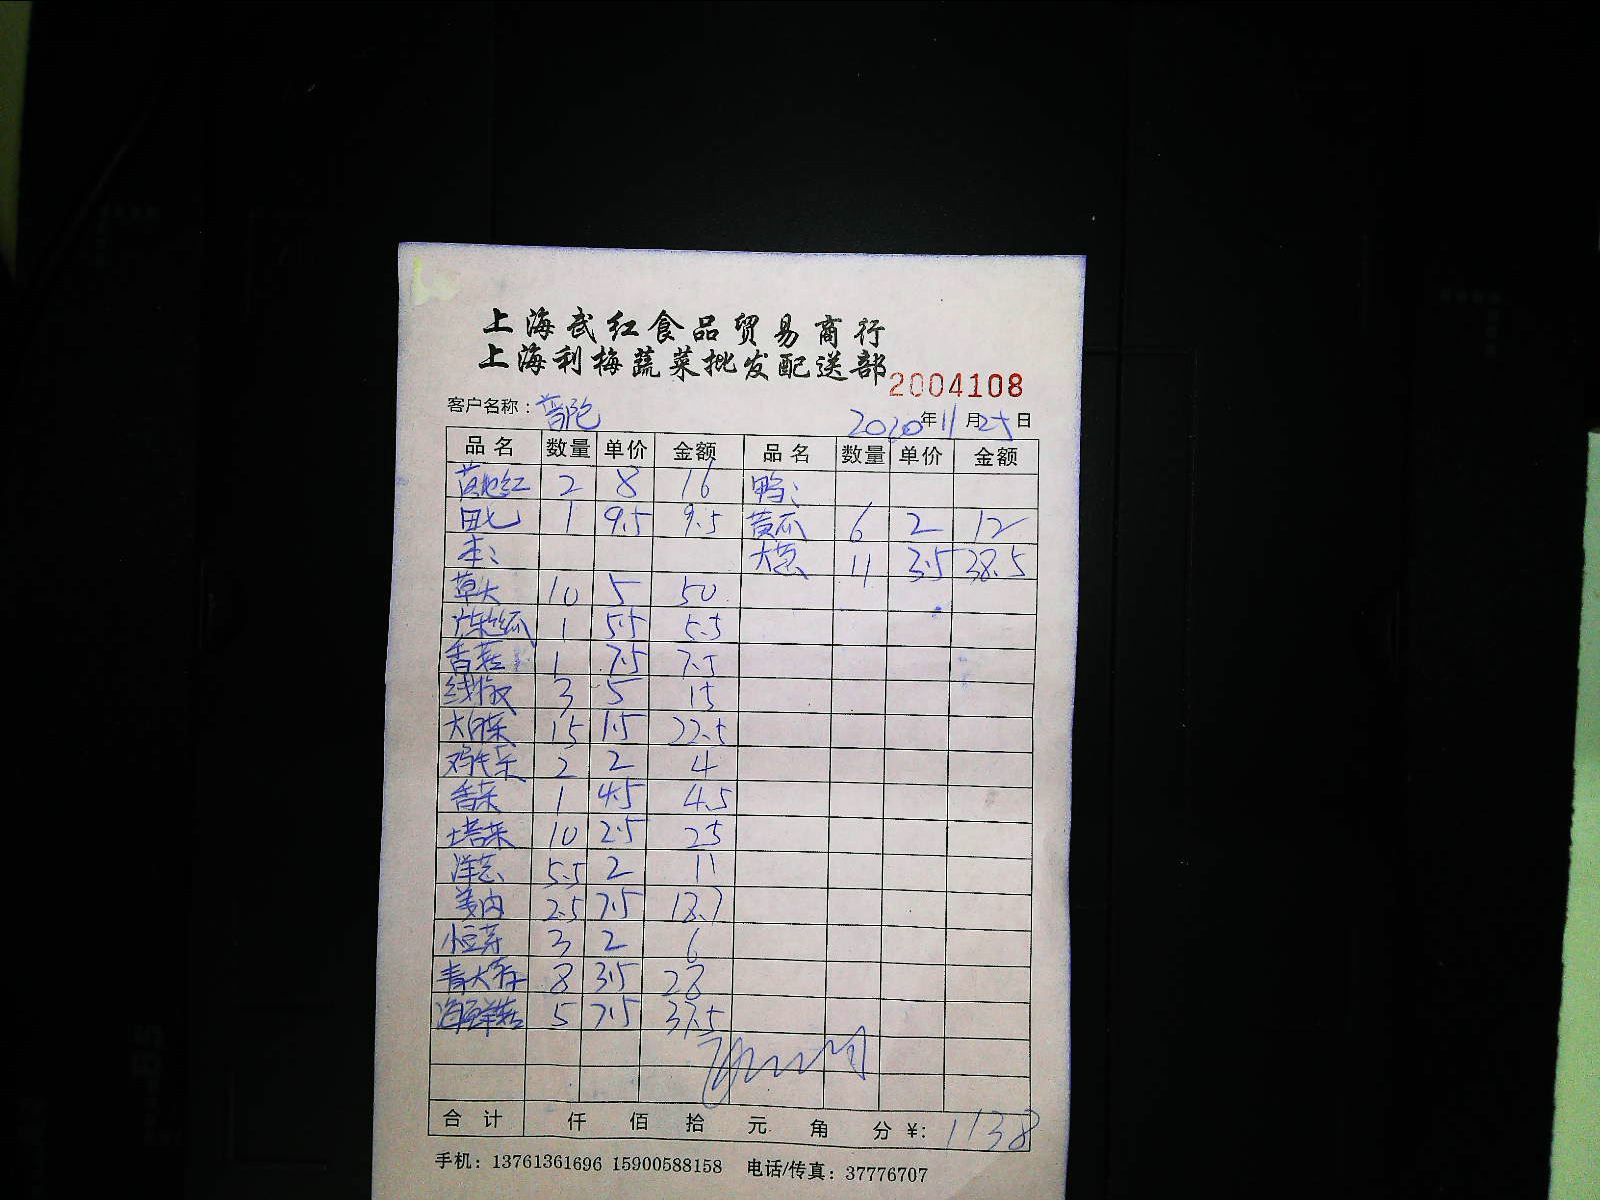 上海武红食品贸易商行
上海利梅蔬菜批发配送部
2004108
客户名称：普陀 2020年11月25日
品名 数量 单价 金额 品名 数量 单价 金额
落地红 2 8 16 鸭：
田七 1 9.5 9.5 黄瓜 6 2 12
本： 大葱 11 3.5 38.5
草大 10 5 50
广东丝瓜 1 5.5 5.5
香菇 1 7.5 7.5
线椒 3 5 15
大白菜 15 1.5 22.5
鸡毛菜 2 2 4
香菜 1 4.5 4.5
塔菜 10 2.5 25
洋葱 5.5 2 11
姜肉 2.5 7.5 18.7
小豆芽 3 2 6
青大蒜 8 3.5 28
海鲜菇 5 7.5 37.5
合计 仟 佰 拾 元 角 分 ¥: 1138
手机：13761361696 15900588158 电话/传真：37776707